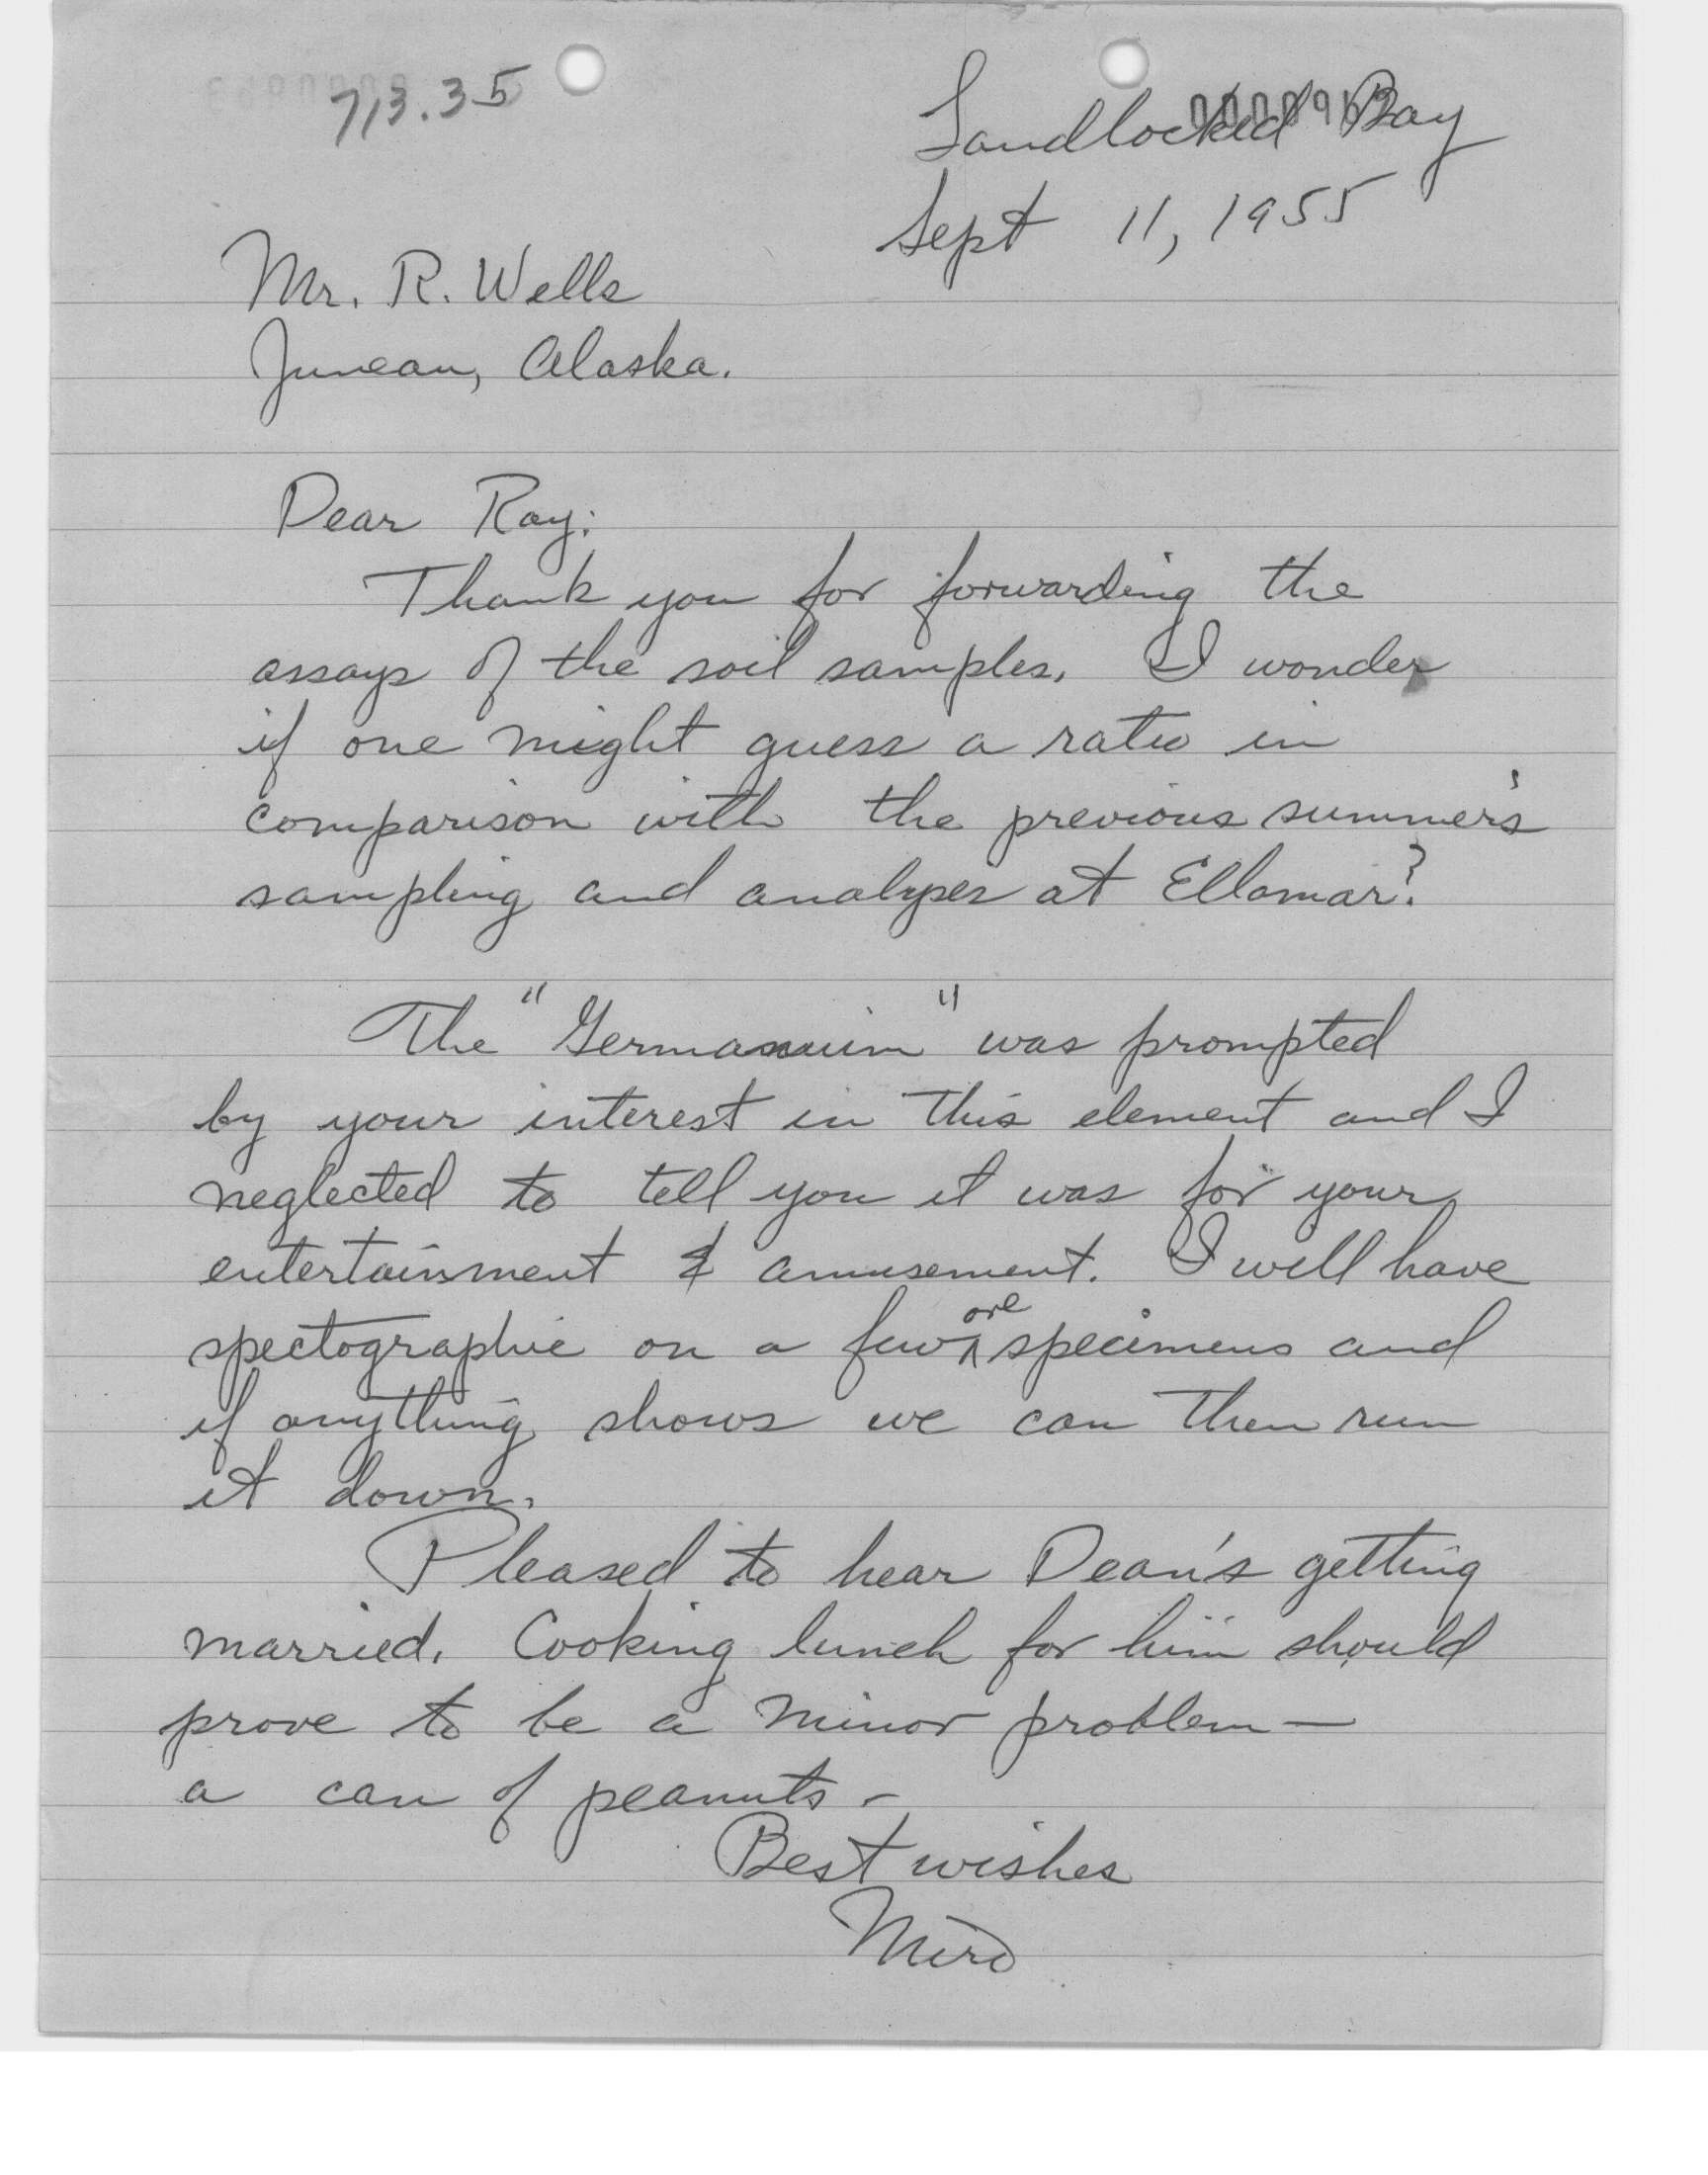 713.35
Landlocked Bay
Sept 11, 1955
Mr. R. Wells
Juneau, Alaska.
Dear Ray:
Thank you for forwarding the
assays of the soil samples. I wonder
if one might guess a ratio in
comparison with the previous summer's
sampling and analyses at Ellamar?
The "Germanium" was prompted
by your interest in this element and I
neglected to tell you it was for your
entertainment & amusement. I will have
spectographic on a few ore specimens and
if anything shows we can then run
it down.
Pleased to hear Dean's getting
married. Cooking lunch for him should
prove to be a minor problem —
a can of peanuts -
Best wishes
Miro